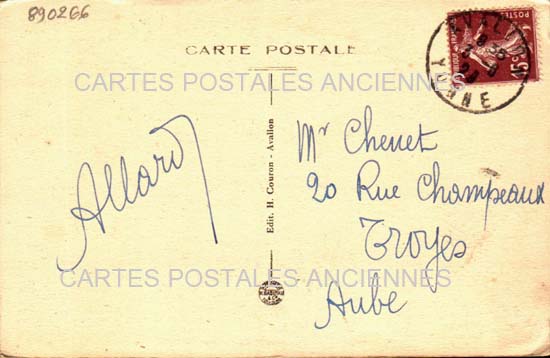 890266
CARTE POSTALE
CARTES POSTALES ANCIENNES
AVALLON
YONNE
POSTES
15c
Allard
Edit. H. Couron - Avallon
Mr Chenet
20 Rue Champeaux
Troyes
Aube
CARTES POSTALES ANCIENNES